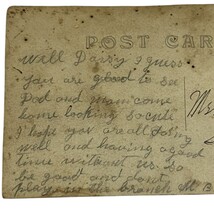 POST CAR
Will Daisy I guess
You are glad to see
Dad and mam come
home looking so cute
I hope you are all doing
well and having a good
time without us. So
be good and dont
play in the branch M B